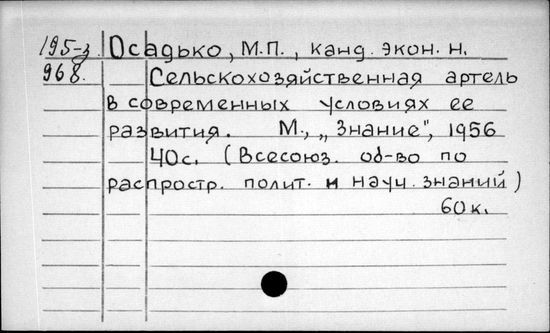 195-з Осадько, М.П., канд. экон. н.
968. Сельскохозяйственная артель
в современных условиях ее
развития. М., „Знание", 1956
40с. (Всесоюз. об-во по
распростр. полит. и науч. знаний)
60к.